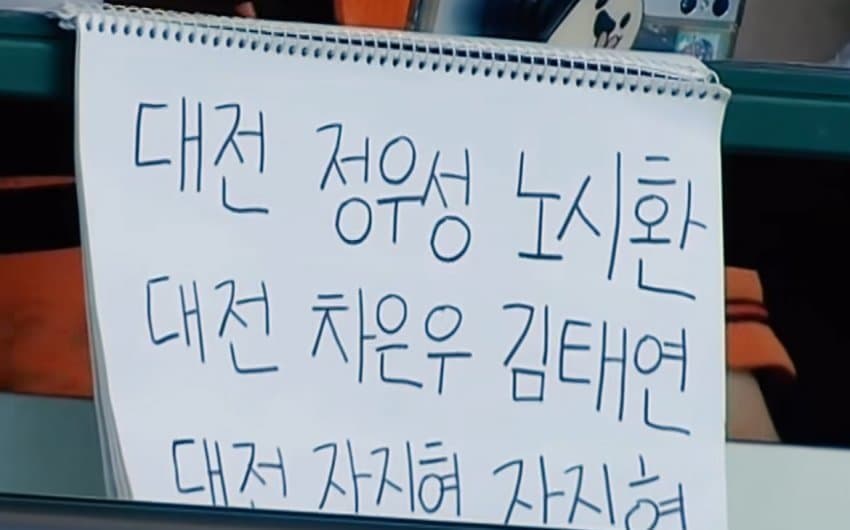 대전 정우성 노시환
대전 차은우 김태연
대전 자지혀 자지혀